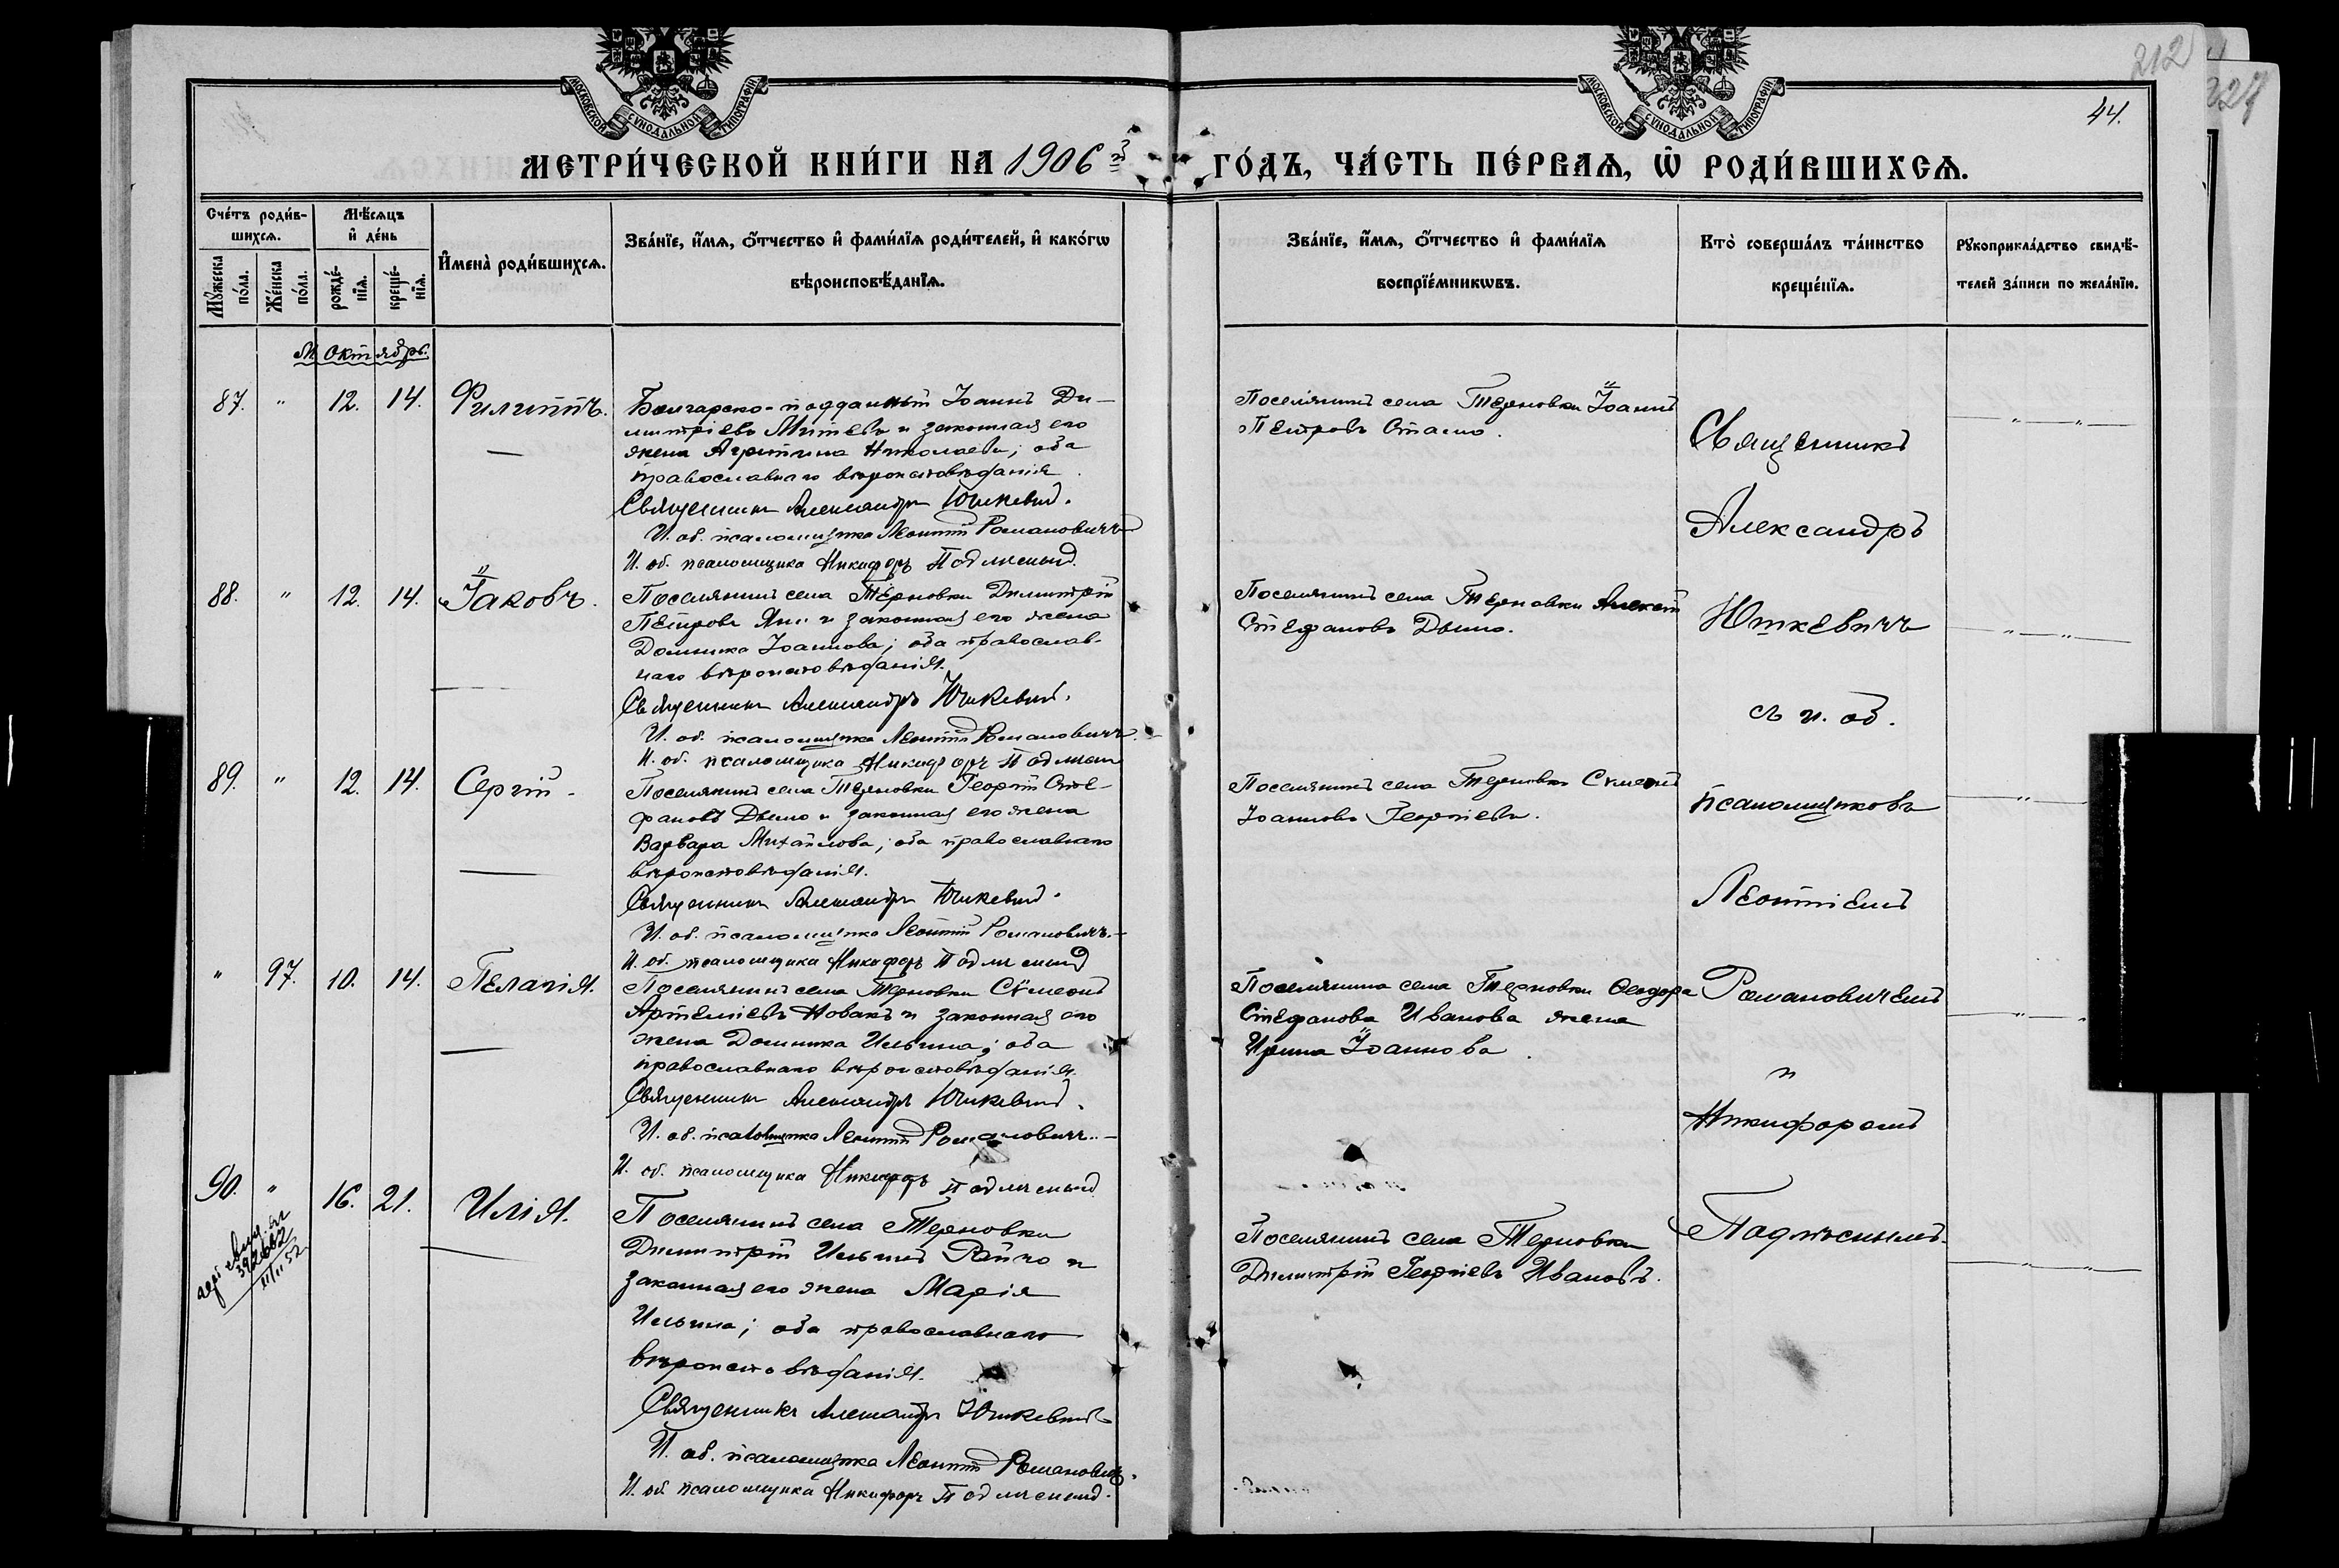 212
327
44.
МОСКОВСКОЙ СѴНОДАЛЬНОЙ ТИПОГРАФІИ
МОСКОВСКОЙ СѴНОДАЛЬНОЙ ТИПОГРАФІИ
МЕТРИ́ЧЕСКОЙ КНИ́ГИ НА 1906 й ГО́ДЪ, ЧА́СТЬ ПЕ́РВАѦ, Ѡ҆ РОДИ́ВШИХСѦ.
Сче́тъ роди́в-
шихсѧ.
Мѣ́сѧцъ
и҆ де́нь
Мꙋ́жеска по́ла.
Же́нска по́ла.
рожде́-
нїѧ.
креще́-
нїѧ.
И҆мена̀ роди́вшихсѧ.
Зва́нїе, и҆́мѧ, ѻ҆́тчество и҆ фами́лїѧ роди́телей, и҆ како́гѡ
вѣроисповѣ́данїѧ.
Зва́нїе, и҆́мѧ, ѻ҆́тчество и҆ фами́лїѧ
воспрїе́мникѡвъ.
Кто̀ соверша́лъ та́инство
креще́нїѧ.
Рꙋкоприкла́дство свидѣ́-
телей за́писи по жела́нїю.
М. Октябрь.
87. " 12. 14. Филиппъ.
Болгарско-подданный Іоаннъ Ди-
митріевъ Митевъ и законная его
жена Агриппина Николаева; оба
православнаго вѣроисповѣданія.
Священникъ Александръ Юшкевичъ.
И. об. псаломщика Леонтій Романовичъ
И. об. псаломщика Никифоръ Подлѣсный.
Поселянинъ села Терновки Іоаннъ
Петровъ Стамо.
88. " 12. 14. Іаковъ.
Поселянинъ села Терновки Димитрій
Петровъ и законная его жена
Домника Іоаннова; оба православ-
наго вѣроисповѣданія.
Священникъ Александръ Юшкевичъ.
И. об. псаломщика Леонтій Романовичъ.
И. об. псаломщика Никифоръ Подлѣсн
Поселянинъ села Терновки Алексій
Стефановъ Дымо.
89. " 12. 14. Сергій.
Поселянинъ села Терновки Георгій Сте-
фановъ Дымо и законная его жена
Варвара Михайлова; оба православнаго
вѣроисповѣданія.
Священникъ Александръ Юшкевичъ.
И. об. псаломщика Леонтій Романовичъ.
И. об. псаломщика Никифоръ Подлѣсный
Поселянинъ села Терновки Сѵмеонъ
Іоанновъ Георгіевъ.
" 97. 10. 14. Пелагія.
Поселянинъ села Терновки Сѵмеонъ
Артеміевъ Новакъ и законная его
жена Домника Ильина; оба
православнаго вѣроисповѣданія.
Священникъ Александръ Юшкевичъ.
И. об. псаломщика Леонтій Романовичъ.
И. об. псаломщика Никифоръ Подлѣсный
Поселянина села Терновки Ѳеодора
Стефанова Иванова жена
Ирина Іоаннова.
90. " 16. 21. Илія.
392662
11/II 52
Поселянинъ села Терновки
Димитрій Ильинъ Райчо и
законная его жена Марія
Ильина; оба православнаго
вѣроисповѣданія.
Священникъ Александръ Юшкевичъ
И. об. псаломщика Леонтій Романовичъ.
И. об. псаломщика Никифоръ Подлѣсный.
Поселянинъ села Терновки
Димитрій Георгіевъ Ивановъ.
Священникъ
Александръ
Юшкевичъ
съ и. об.
псаломщиковъ
Леонтіемъ
Романовичемъ
и
Никифоромъ
Подлѣснымъ.